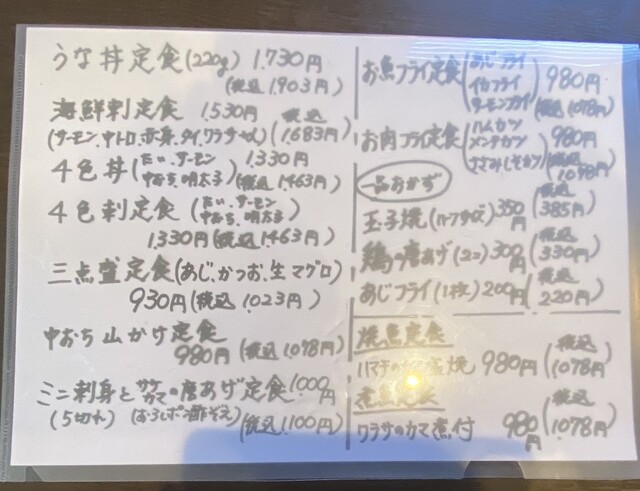 うな丼定食(220g) 1,730円
(税込1,903円)
海鮮刺定食 1,530円 税込
(サーモン、中トロ、赤身、タイ、ワラサ) (1,683円)
4色丼 (たい、サーモン 1,330円
中おち、明太子) (税込1,463円)
4色刺定食 (たい、サーモン
中おち、明太子)
1,330円(税込1,463円)
三点盛定食(あじ、かつお、生マグロ)
930円(税込1,023円)
中おち山かけ定食
980円(税込1,078円)
ミニ刺身とサケカマの唐あげ定食 1,000円
(5切れ) (おろしポン酢ぞえ) (税込1,100円)
お魚フライ定食 (あじフライ
イカフライ 980円
サーモンフライ) (税込1,078円)
お肉フライ定食 (ハムカツ
メンチカツ 980円
ささみしそカツ) (税込1,078円)
一品おかず
玉子焼(ハーフサイズ)350円 (税込385円)
鶏の唐あげ(2コ)300円 (税込330円)
あじフライ(1枚)200円 (税込220円)
焼魚定食
ハマチのカマ塩焼 980円 (税込1,078円)
煮魚定食
ワラサのカマ煮付 980円 (税込1,078円)